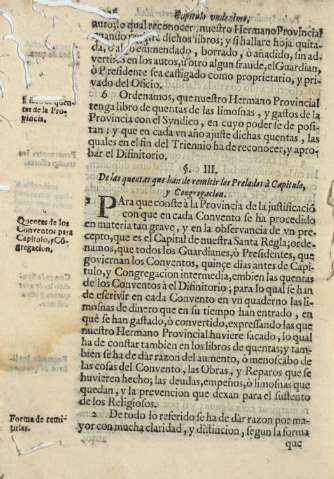 Capitulo vndezimo,
autos, lo qual reconocer, nuestro Hermano Provincial
quando registre dichos libros; y si hallare hoja quita-
da, ó al enmendado, borrado, ò añadido, sin ad-
vertirlo en los autos, ù otro algun fraude, el Guardian,
ò Presidente sea castigado como proprietario, y pri-
vado del Oficio.
6 Ordenamos, que nuestro Hermano Provincial
tenga libro de quentas de las limosnas, y gastos de la
Provincia con el Syndico, en cuyo poder le deposi-
tan: y que en cada vn año ajuste dichas quentas, las
quales en el fin del Triennio ha de reconocer, y apro-
bar el Difinitorio.
Libro de quen-
tas de la Pro-
vincia.
§. III.
De las quentas que han de remitir los Prelados à Capitulo,
y Congregacion.
Para que conste à la Provincia de la justificació
con que en cada Convento se ha procedido
en materia tan grave, y en la observancia de vn pre-
cepto, que es el Capital de nuestra Santa Regla; orde-
namos, que todos los Guardianes, ò Presidentes, que
goviernan los Conventos, quinçe dias antes de Capi-
tulo, y Congregacion intermedia, embien las quentas
de los Conventos à el Difinitorio; para lo qual se han
de escrivir en cada Convento en vn quaderno las li-
mosnas de dinero que en su tiempo han entrado, en
què se han gastado, ò convertido, expressando las que
nuestro Hermano Provincial huviere sacado, lo qual
ha de constar tambien en los libros de quentas; y tam-
bien se ha de dàr razon del aumento, ò menoscabo de
las cosas del Convento, las Obras, y Reparos que se
huvieren hecho; las deudas, empeños, ò limosnas que
quedan, y la prevencion que dexan para el sustento
de los Religiosos.
Quentas de los
Conventos para
Capitulo, y Cõ-
gregacion.
2 De todo lo referido se ha de dàr razon por ma-
yor con mucha claridad, y distincion, segun la forma
Forma de remi-
tirlas.
que